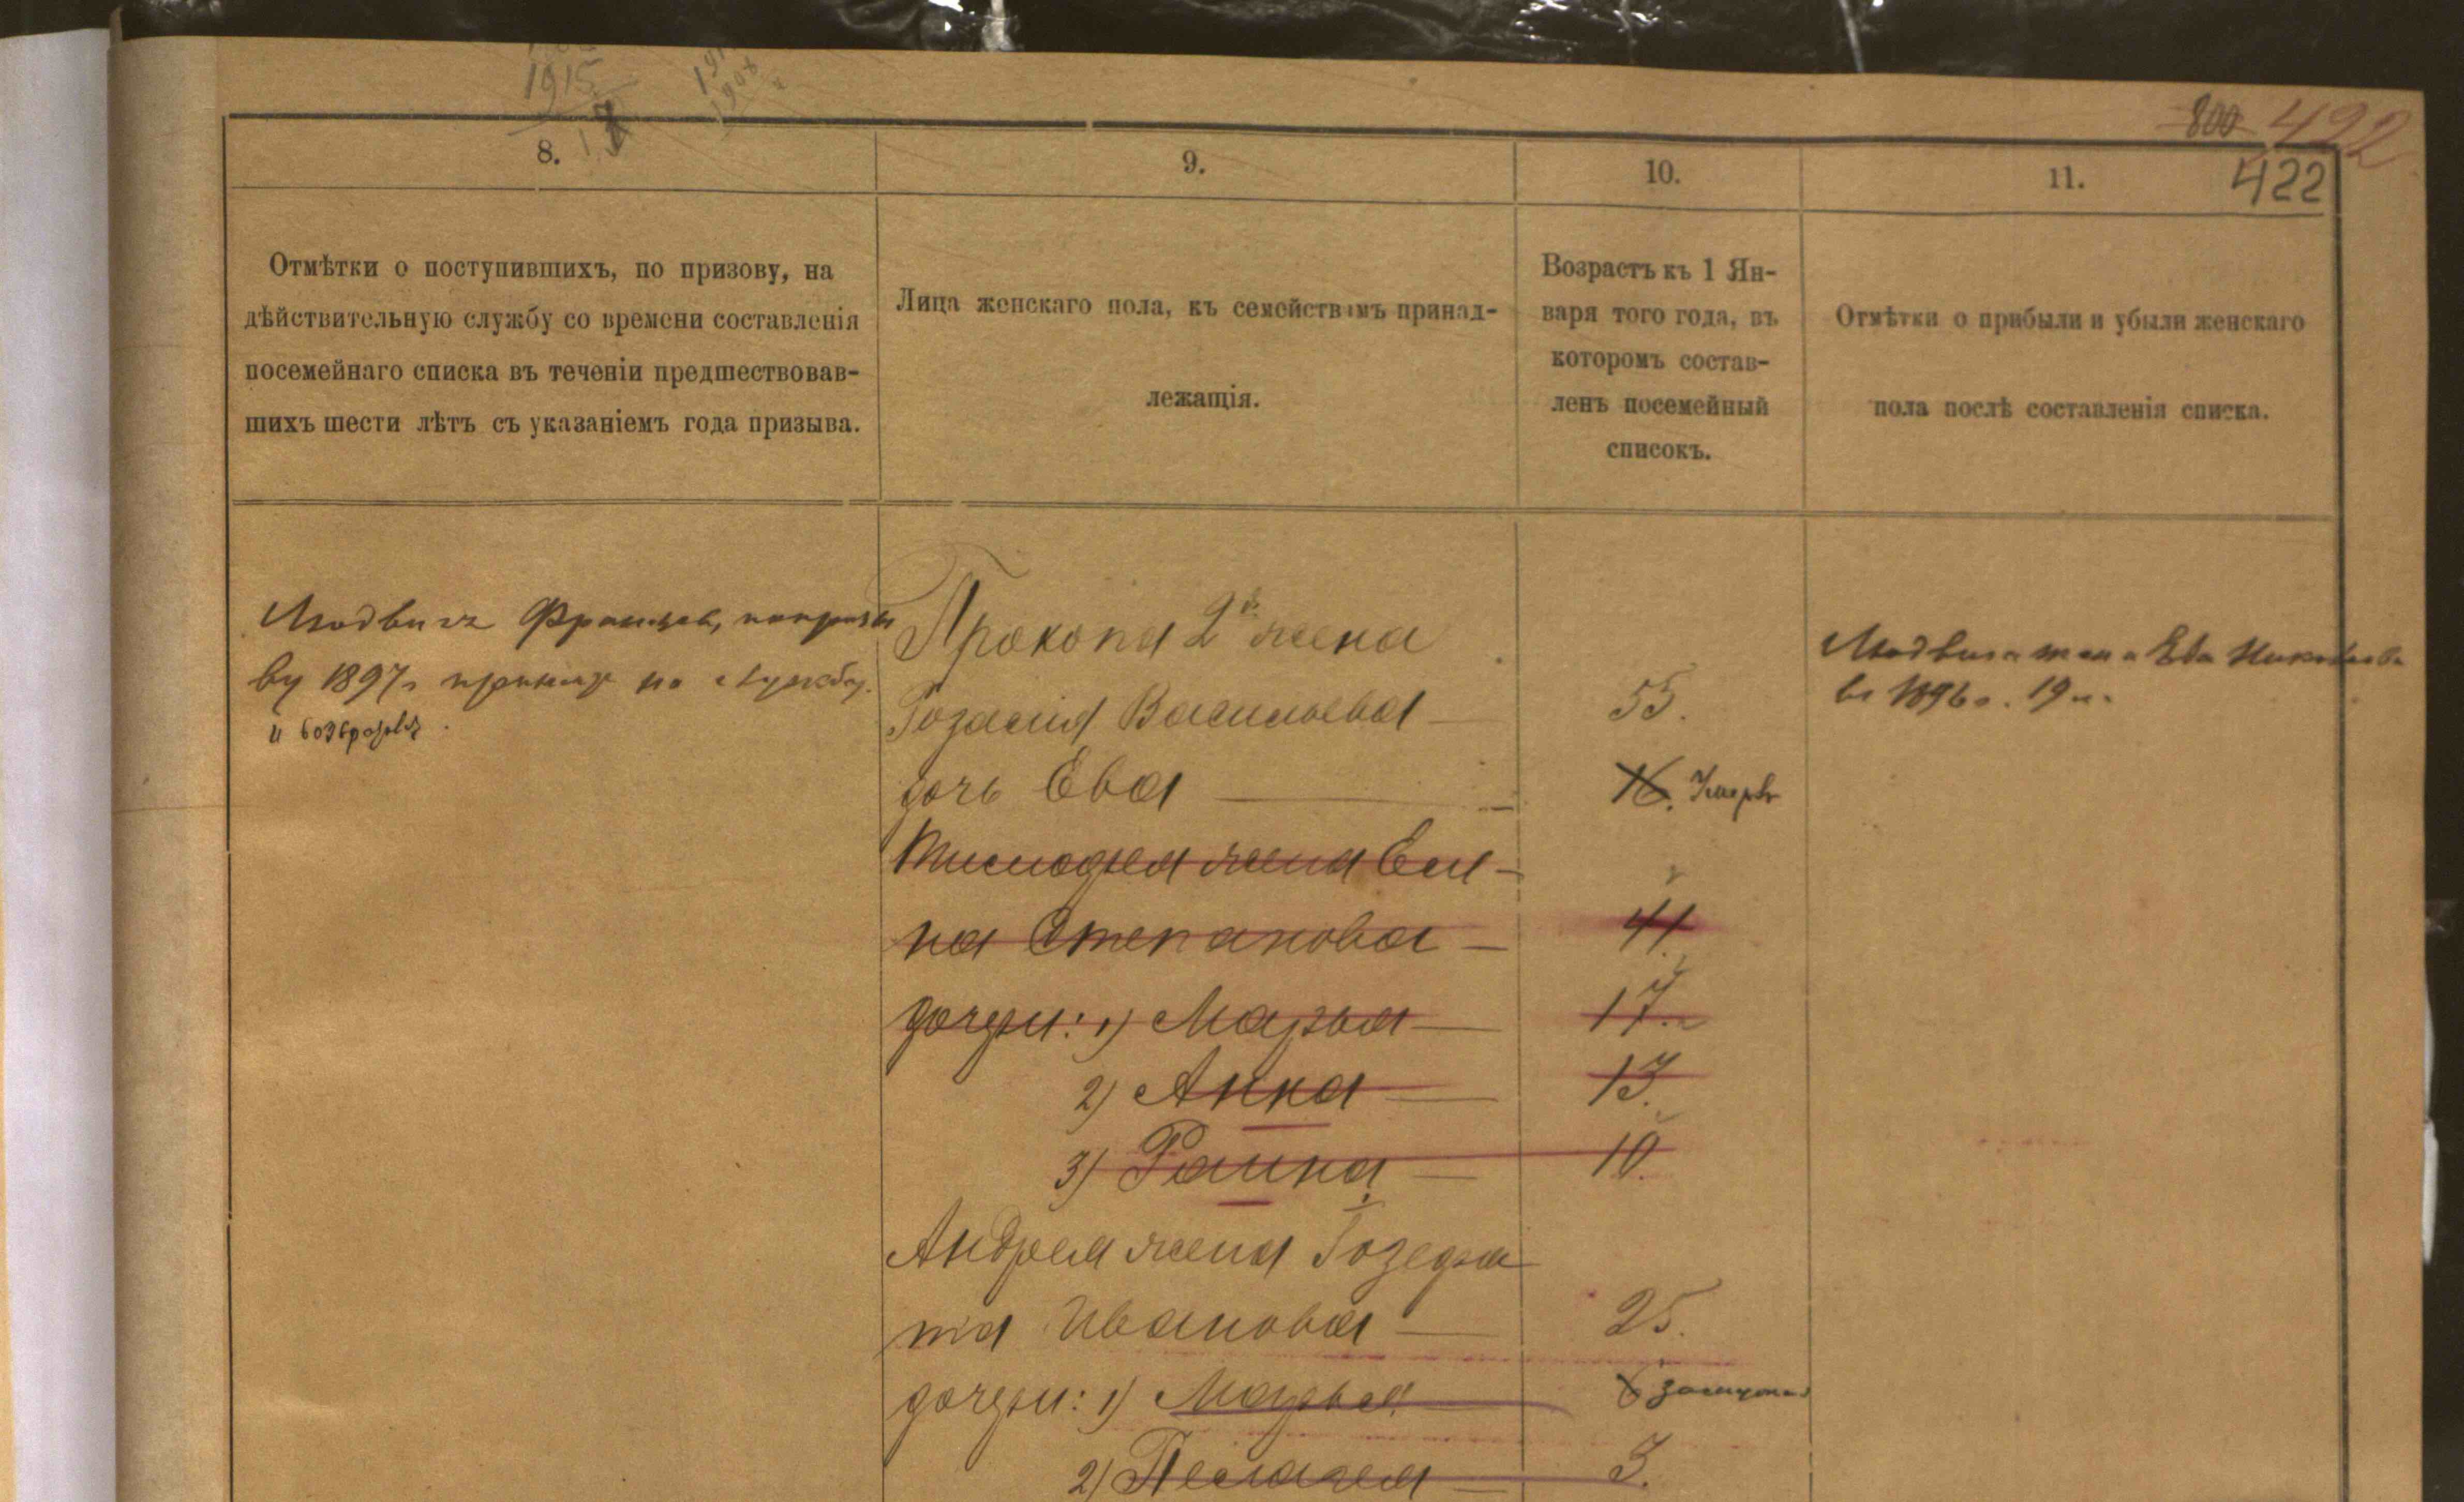 1915
17
1908
800 492
8.
9.
10.
11.
422
Отмѣтки о поступившихъ, по призову, на
дѣйствительную службу со времени составленія
посемейнаго списка въ теченіи предшествовав-
шихъ шести лѣтъ съ указаніемъ года призыва.
Лица женскаго пола, къ семействамъ принад-
лежащія.
Возрастъ къ 1 Ян-
варя того года, въ
которомъ состав-
ленъ посемейный
списокъ.
Отмѣтки о прибыли и убыли женскаго
пола послѣ составленія списка.
Людвигъ Францевъ, по призы
ву 1897г принятъ на службу.
и возвратился.
Прокопа 2я жена
Розалія Васильева — 55.
дочь Ева — 16. Умерла
жена Еле-
на Степанова — 41.
дочери: 1) Марья — 17.
2) Анна — 13.
3) Раина — 10.
Андрея жена Іозефа
та Иванова — 25.
дочери: 1) Марья 6 замужем
2) Пелагея — 3.
Людвига жена Ева Николаева
въ 1896г. 19 л.